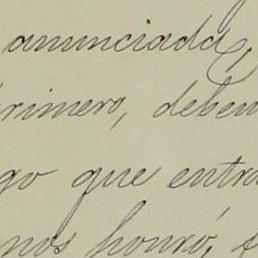 anunciada,
rimero, deben
go que entra
nos honró,